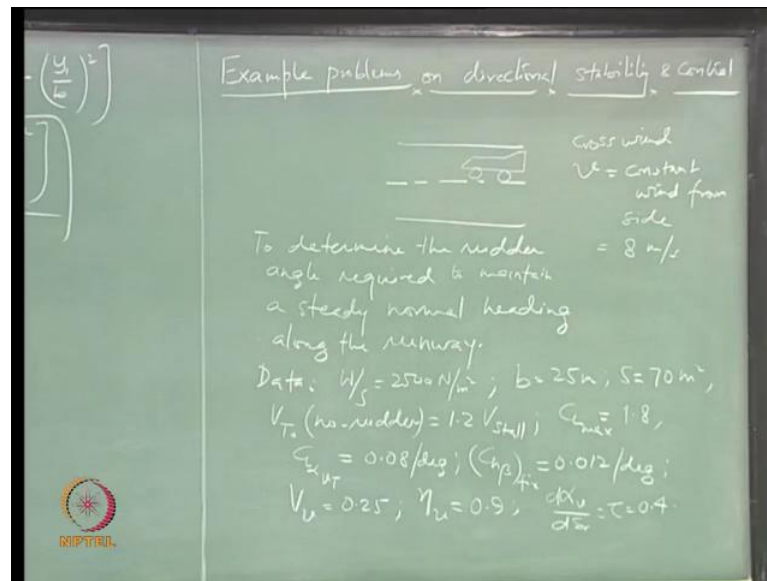 (y₁/b)²]
Example problems on directional stability & control
cross wind
v = constant
wind from
side
= 8 m/s
To determine the rudder
angle required to maintain
a steady normal heading
along the runway.
Data: W/S = 2500 N/m²; b = 25m; S = 70 m²,
V_To (no-rudder) = 1.2 V_stall; C_Lmax = 1.8,
C_LαVT = 0.08/deg; (C_nβ)_fix = 0.012/deg;
V_v = 0.25; η_v = 0.9, dα_v/dδ_r = τ = 0.4.
NPTEL